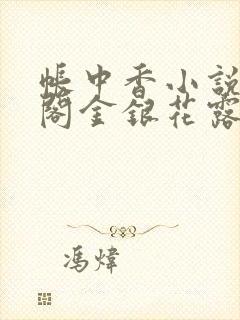 帳中香小說
閣金銀花露
馮煒